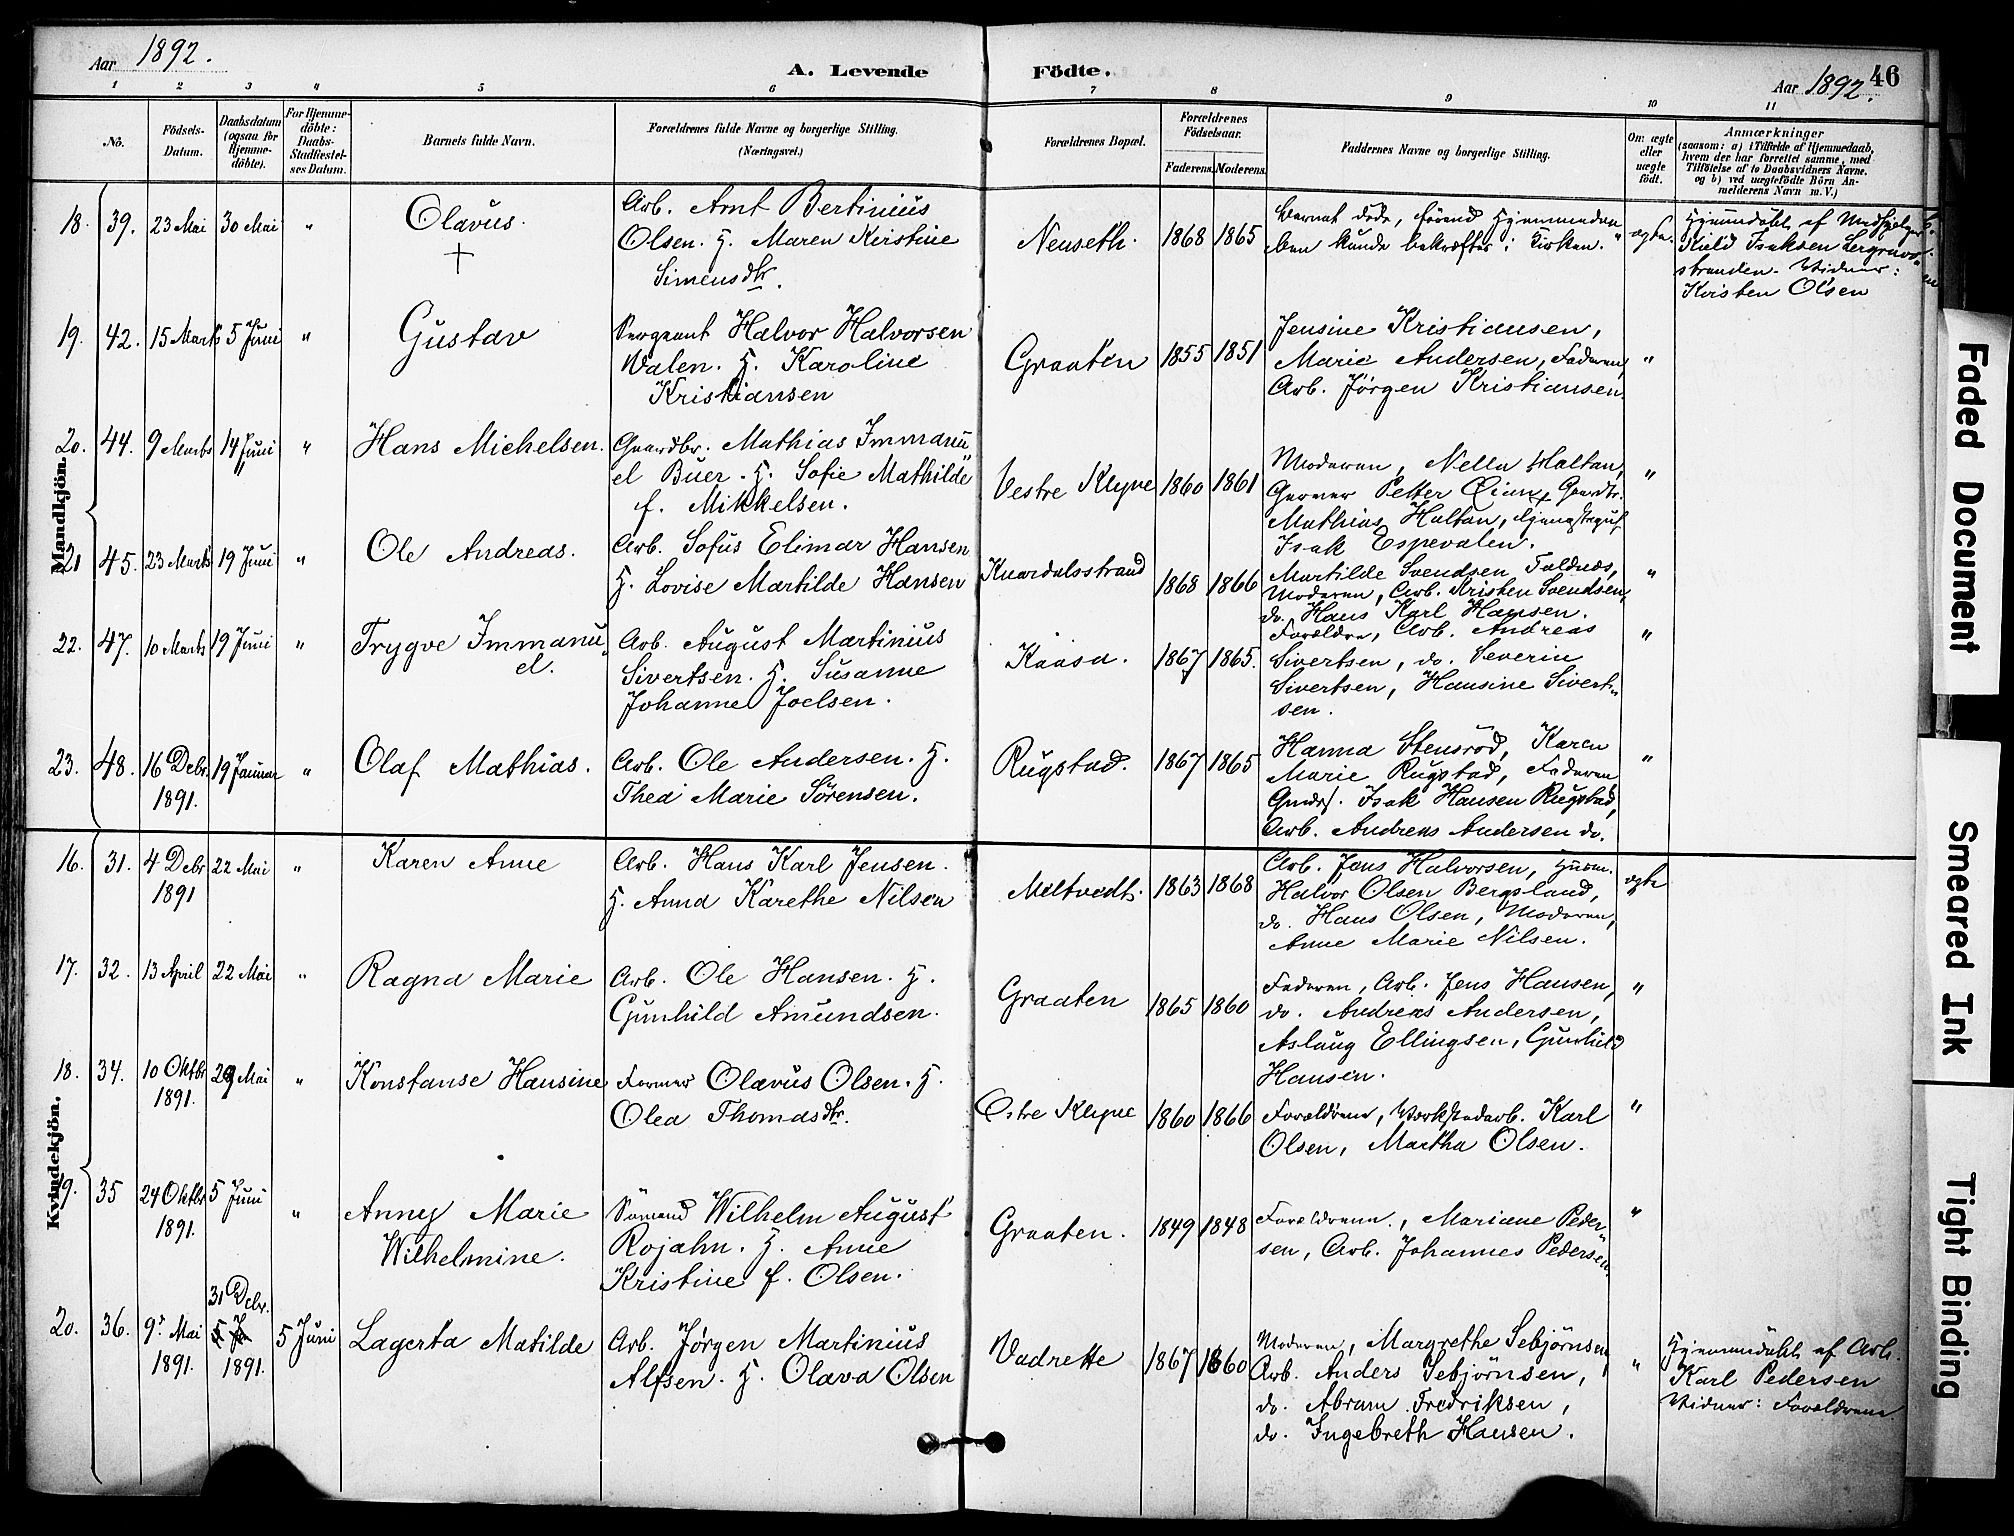 Aar 1892.
A. Levende Födte.
Aar 1892. 46
1 2 3 4 5 6 7 8 9 10 11
No.
Födsels-
Datum.
Daabsdatum
(ogsaa for
Hjemme-
döbte).
For Hjemme-
döbte:
Daabs-
Stadfæstel-
ses Datum.
Barnets fulde Navn.
Forældrenes fulde Navne og borgerlige Stilling.
(Næringsvei.)
Forældrenes Bopæl.
Forældrenes
Födselsaar.
Faderens. Moderens.
Faddernes Navne og borgerlige Stilling.
Om ægte
eller
uægte
födt.
Anmærkninger
(saasom: a) i Tilfælde af Hjemmedaab,
hvem der har forrettet samme, med
Tilföielse af to Daabsvidners Navne.
og b) ved uægtefödte Börn An-
melderens Navn m. V.)
Mandkjön.
18. 39. 23 Mai 30 Mai " Olavus. †
Arb. Amt Bertinius
Olsen. H. Maren Kirstine
Simensdtr.
Neuseth. 1868 1865
Barnet döde, förend Hjemmedaa-
ben kunde bekræftes i Kirken. ægte.
Hjemmedöbt af
Kield Isaksen Lergrav-
stranden. Vidner:
Kristen Olsen
19. 42. 15 Marts 5 Juni " Gustav
Sergeant Halvor Halvorsen
Valen. H. Karoline
Kristiansen
Graaten 1855 1851
Jensine Kristiansen,
Marie Andersen, Faderen,
Arb. Jörgen Kristiansen "
20. 44. 9 Marts 14 Juni " Hans Michelsen.
Gaardbr. Mathias Immanu-
el Buer. H. Sofie Mathilde
f. Mikkelsen.
Vestre Klyve 1860 1861
Moderen, Nella Haltan,
Garver Petter Gaardbr.
Mathias Haltan,
Isak Espevalen. "
21 45. 23 Marts 19 Juni " Ole Andreas.
Arb. Sofus Elimar Hansen
H. Lovise Martilde Hansen
Knardalsstrand 1868 1866
Martilde Svendsen Faldnæs,
Moderen, Arb. Kristen Svendsen,
do. Hans Karl Hansen. "
22. 47. 10 Marts 19 Juni " Trygve Immanu-
el.
Arb. August Martinius
Sivertsen. H. Susanne
Johanne Joelsen.
Kaasa. 1867 1865.
Forældre, Arb. Andreas
Sivertsen, do. Severin
Sivertsen, Hansine Sivert-
sen. "
23. 48. 16 Debr. 1891. 19 Januar " Olaf Mathias.
Arb. Ole Andersen. H.
Thea Marie Sörensen.
Rugstad. 1867 1865
Hanna Stensröd, Karen
Marie Rugstad, Faderen
Isak Hansen Rugstad,
Arb. Andreas Andersen do. "
Kvindekjön.
16. 31. 4 Debr 1891 22 Mai " Karen Anne
Arb. Hans Karl Jensen.
H. Anna Karethe Nilsen
Meltvedt. 1863 1868
Arb. Jens Halvorsen, Husm.
Halvor Olsen Bergsland,
do. Hans Olsen, Moderen,
Anne Marie Nilsen. ægte
17. 32. 13 April 22 Mai " Ragna Marie
Arb. Ole Hansen. H.
Gunhild Amundsen.
Graaten 1865 1860
Faderen, Arb. Jens Hansen,
do. Andreas Andersen,
Aslaug Ellingsen, Gunhild
Hansen. "
18. 34. 10 Oktbr 1891. 29 Mai " Konstanse Hansine
Farmer Olavus Olsen. H.
Olea Thomasdtr.
Östre Klyve 1860 1866
Forældrene, Værkstedarb. Karl
Olsen, Martha Olsen. "
19. 35 24 Oktbr 1891. 5 Juni " Anny Marie
Wilhelmine.
Sömand Wilhelm August
Rojahn. H. Anne
Kristine f. Olsen.
Graaten. 1849 1848
Forældrene., Mariane Peder-
sen, Arb. Johannes Pedersen. "
20. 36. 9. Mai 1891. 31 Debr. 1891. 5 Juni Lagerta Matilde
Arb. Jörgen Martinius
Alfsen. H. Olava Olsen
Vadrette 1867 1860
Moderen, Margrethe Sebjörnsen
Arb. Anders Sebjörnsen,
do. Abram Fredriksen,
do. Ingebreth Hansen. "
Hjemmedöbt af Arb.
Karl Pedersen
Vidner: Forældrene.
Faded Document
Smeared Ink
Tight Binding